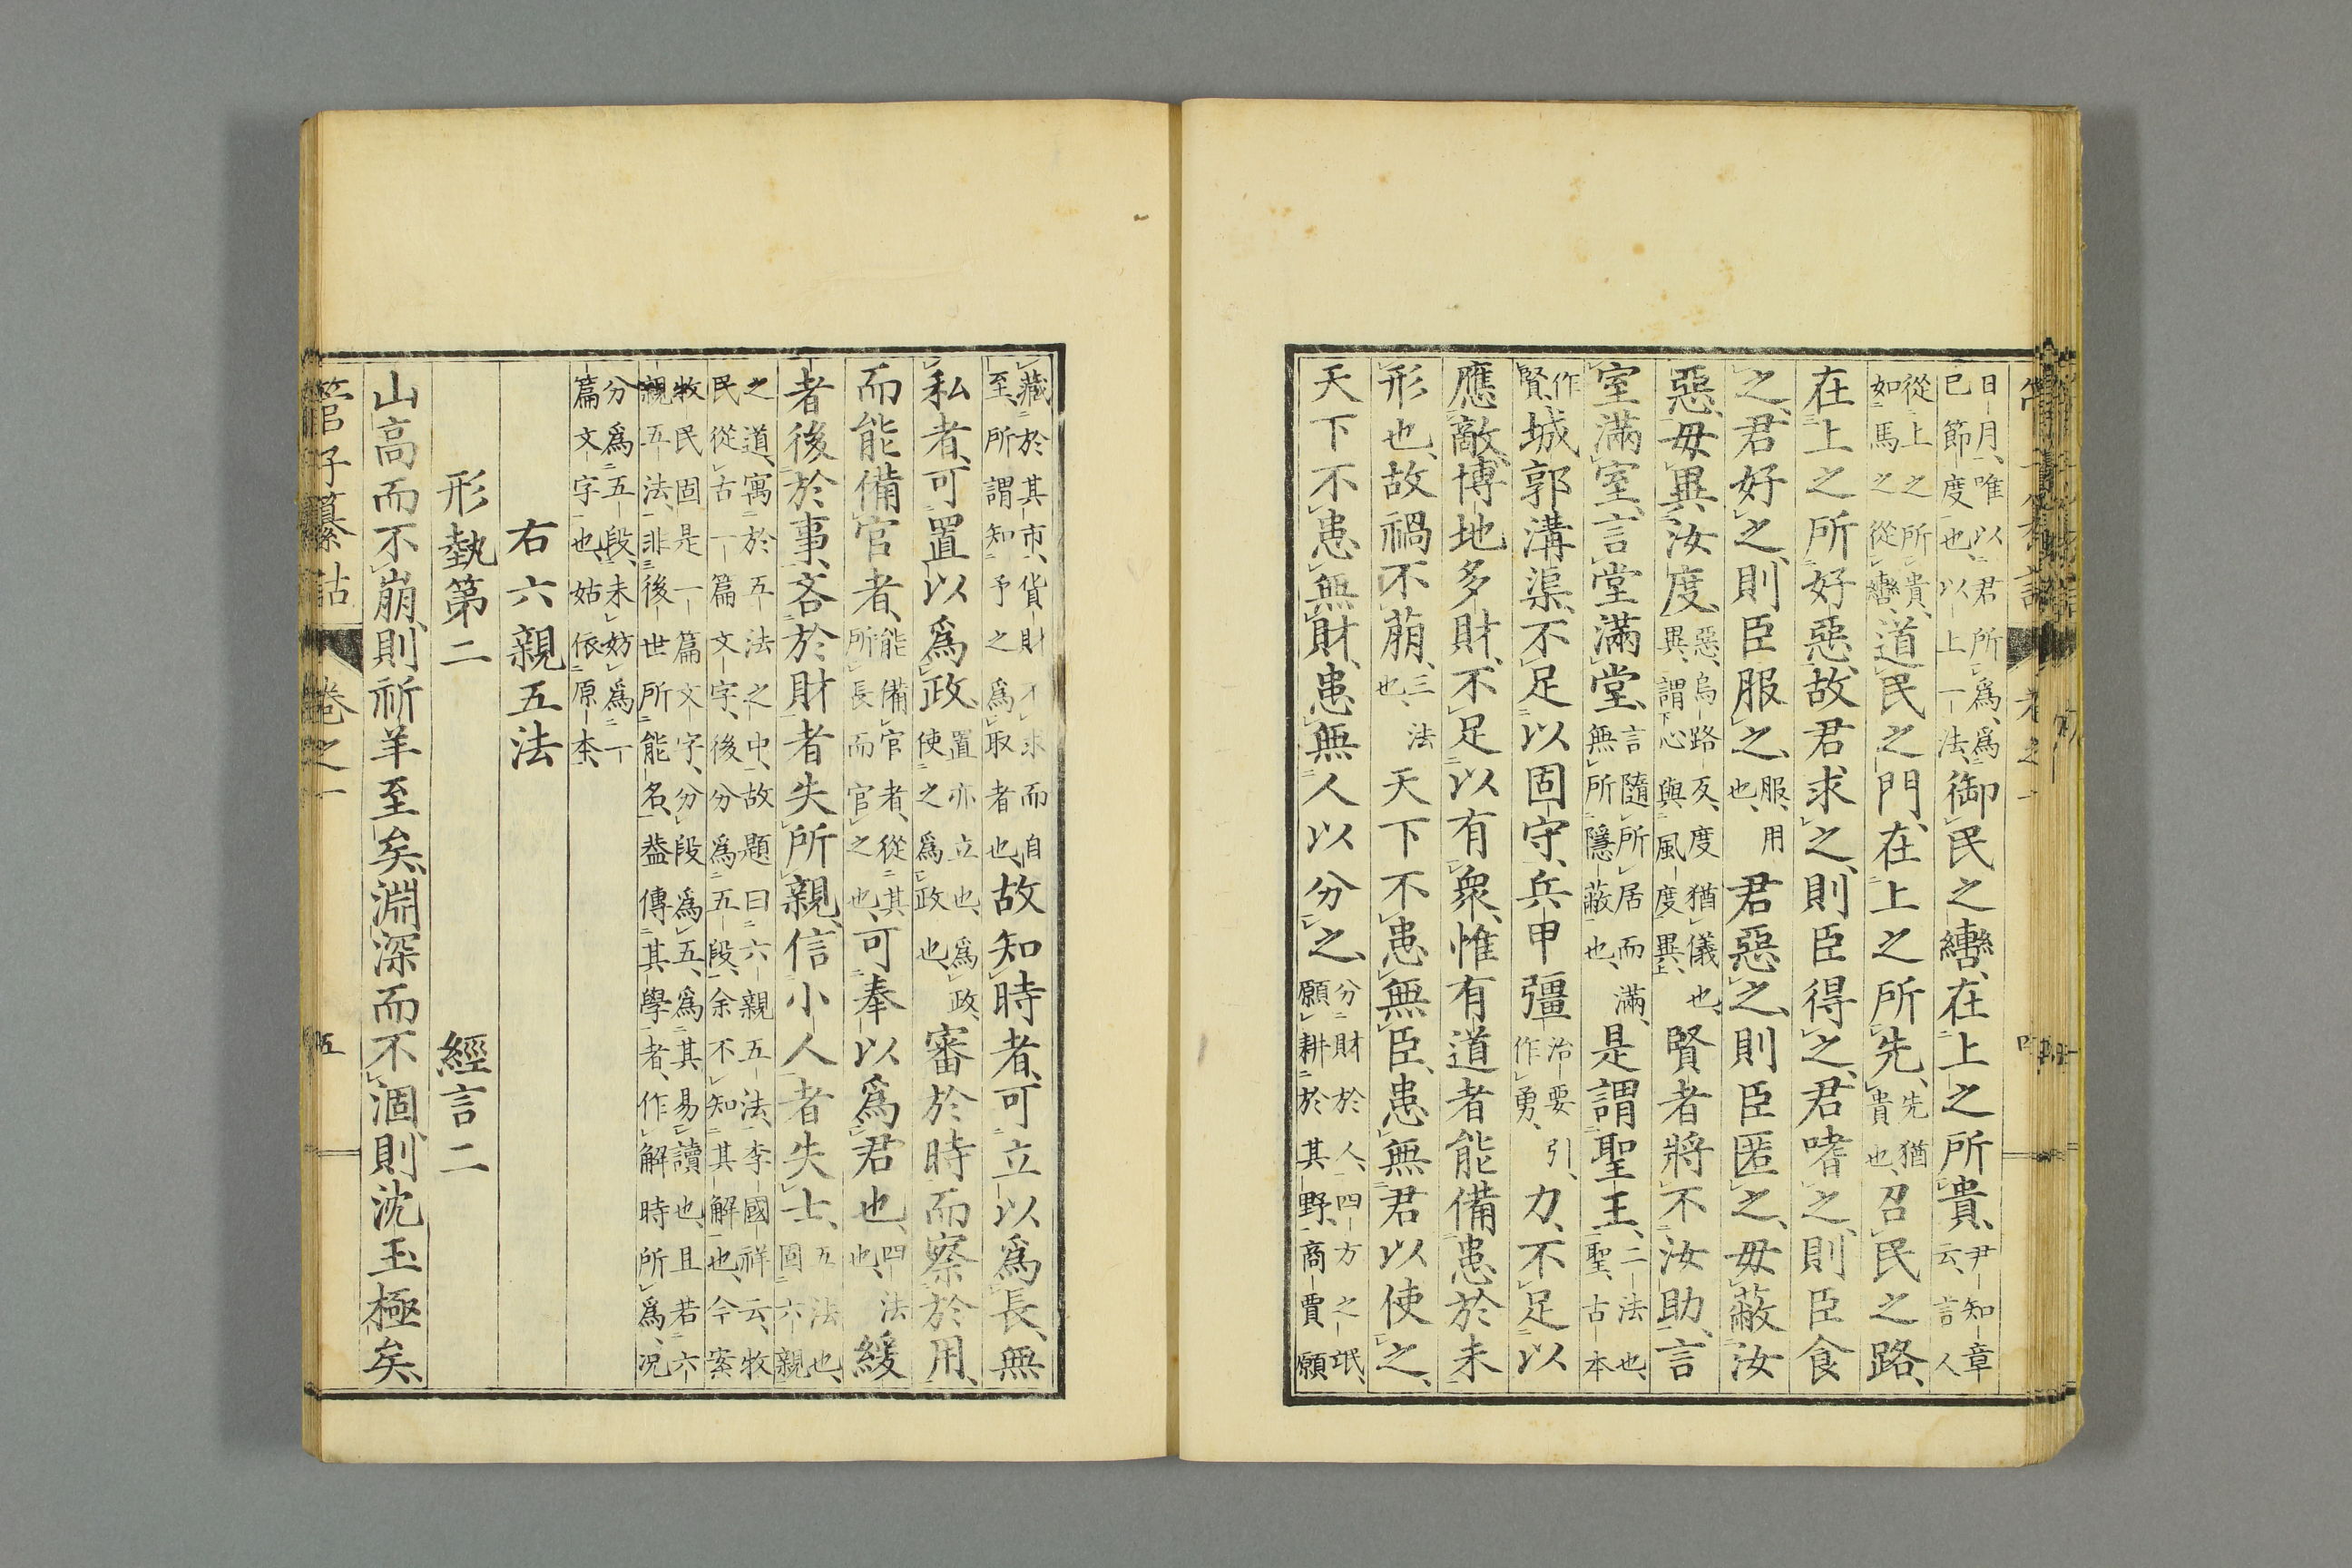 日月、唯以君所爲、爲
已節度也、以上一法、御民之轡、在上之所貴、尹知章云、言人
從上之所貴、
如馬之從轡、道民之門、在上之所先、先猶貴也、召民之路、
在上之所好惡、故君求之、則臣得之、君嗜之、則臣食
之、君好之、則臣服之、服、用也、君惡之、則臣匿之、毋蔽汝
惡、毋異汝度、惡、烏路反、度猶儀也、異、謂下心與風度異上、賢者將不汝助、言
室滿室、言堂滿堂、言隨所居而滿、無所隱蔽也、是謂聖王、二法也、聖、古本
作賢、城郭溝渠、不足以固守、兵甲彊治要引作勇、力、不足以
應敵、博地多財、不足以有衆、惟有道者能備患於未
形也、故禍不萠、三法也、天下不患無臣、患無君以使之、
天下不患無財、患無人以分之、分財於人、四方之氓、願耕於其野、商賈願
藏於其市、貨財不求而自
至、所謂知予之爲取者也、故知時者、可立以爲長、無
私者、可置以爲政、置亦立也、爲政、使之爲政也、審於時而察於用、
而能備官者、能備官者、從其所長而官之也、可奉以爲君也、四法也、緩
者後於事、吝於財者失所親、信小人者失士、五法也、圖六親
之道、寓於五法之中、故題曰六親五法、李國祥云、牧
民從古一篇文字、後分爲五段、余不知其解也、今案
牧民固是一篇文字、分段爲五、爲其易讀也、且若六
親五法、非後世所能名、葢傳其學者、作解時所爲、况
分爲五段、未妨爲一
篇文字也、姑依原本、
右六親五法
形埶第二　經言二
山高而不崩、則祈羊至矣、淵深而不涸、則沈玉極矣、
管子纂詁　卷之一　五